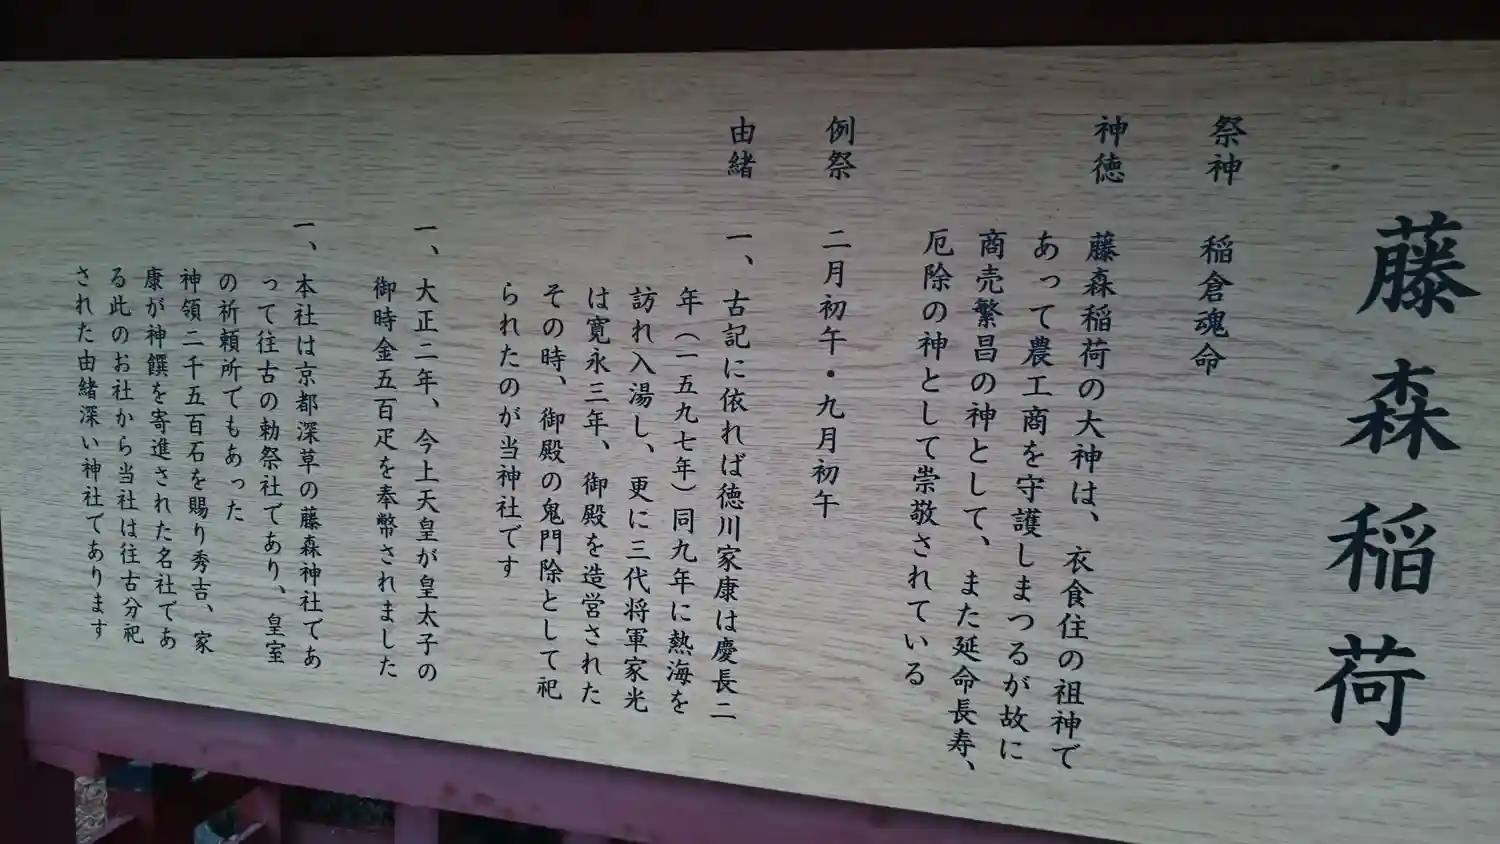 藤森稲荷
祭神 稲倉魂命
神徳 藤森稲荷の大神は、衣食住の祖神で
あって農工商を守護しまつるが故に
商売繁昌の神として、また延命長寿、
厄除の神として崇敬されている
例祭 二月初午・九月初午
由緒 一、古記に依れば徳川家康は慶長二
年（一五九七年）同九年に熱海を
訪れ入湯し、更に三代将軍家光
は寛永三年、御殿を造営された
その時、御殿の鬼門除として祀
られたのが当神社です
一、大正二年、今上天皇が皇太子の
御時金五百疋を奉幣されました
一、本社は京都深草の藤森神社であ
って往古の勅祭社であり、皇室
の祈頼所でもあった
神領二千五百石を賜り秀吉、家
康が神饌を寄進された名社であ
る此のお社から当社は往古分祀
された由緒深い神社であります